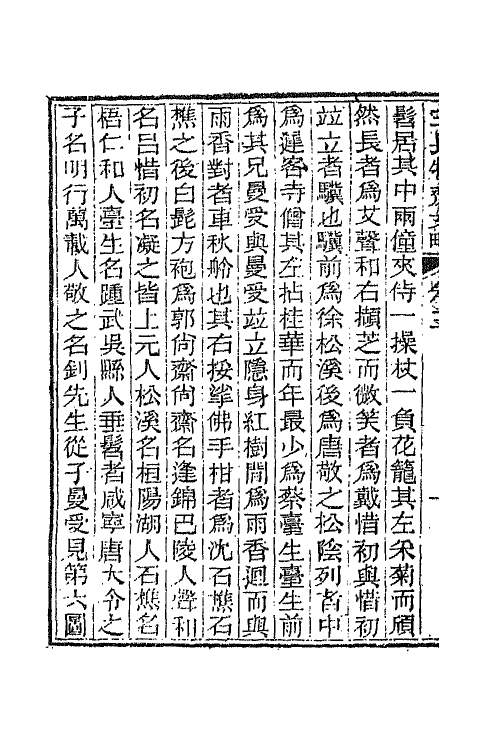 髫居其中兩僮夾侍一操杖一負花籠其左采菊而頎
然長者爲艾聲和右擷芝而微笑者爲戴惜初與惜初
竝立者驥也驥前爲徐松溪後爲唐敬之松陰列者中
爲蓮客寺僧其左拈桂華而年最少爲蔡臺生臺生前
爲其兄曼受與曼受竝立隱身紅樹間爲雨香迴而與
雨香對者車秋舲也其右接挲佛手柑者爲沈石樵石
樵之後白髭方袍爲郭尙齋尙齋名逢錦巴陵人聲和
名呂惜初名凝之皆上元人松溪名桓陽湖人石樵名
梧仁和人臺生名踵武吳縣人垂髫者咸寧唐大令之
子名明行萬載人敬之名釗先生從子曼受見第六圖